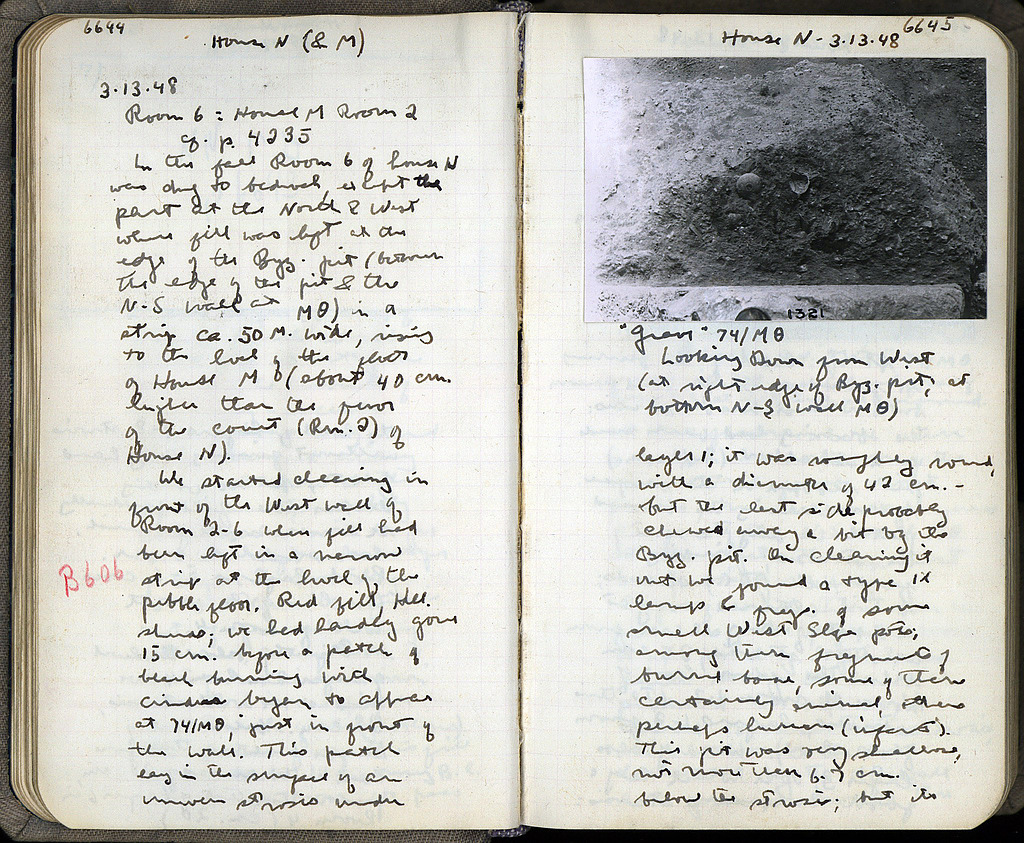 6644
House N (& M)
3.13.48
Room 6 = House M Room 2
cf. p. 4235
In the fall Room 6 of house N
was dug to bedrock, except the
part at the North & West
where fill was left at the
edge of the Byz. pit (between
the edge of the pit & the
N-S wall at MΘ) in a
strip ca. .50 M. wide, rising
to the level of the floor
of House M (about 40 cm.
higher than the floor
of the court (Rm. 2) of
House N).
We started clearing in
front of the West wall of
Room 2-6 where fill had
been left in a narrow
strip at the level of the
pebble floor. Red fill, Hell.
sherds; we had hardly gone
15 cm. before a patch of
black burning with
cinders began to appear
at 74/MΘ, just in front of
the wall. This patch
lay in the surface of an
uneven strosis under
B606
6645
House N - 3.13.48
1321
"Grave" 74/MΘ
Looking Down from West
(at right edge of Byz. pit, at
bottom N-S wall MΘ)
layer 1; it was roughly round,
with a diameter of 42 cm. -
but the east side probably
chewed away a bit by the
Byz. pit. On clearing it
out we found a type IX
lamp & frags. of some
small West Slope pots;
among them fragments of
burned bone, some of them
certainly animal, others
perhaps human (infant).
This pit was very shallow,
not more than 6-7 cm.
below the strosis; but its